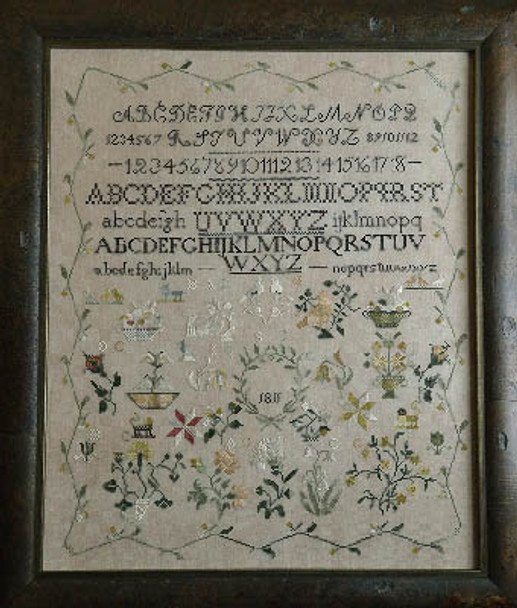 ABCDEFGHIJKLMNOPQ
1234567 RSTUVWXYZ 89101112
—123456789101112131415161718—
ABCDEFGHIJKLMNOPQRST
abcdefgh UVWXYZ ijklmnopq
ABCDEFGHIJKLMNOPQRSTUV
abcdefghijklm — WXYZ — nopqrstuvwxyz